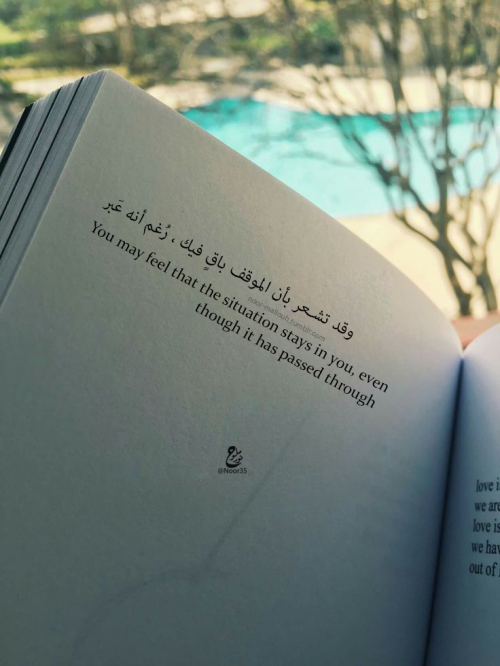 وقد تشعر بأن الموقف باقٍ فيك ، رُغم أنه عَبر
You may feel that the situation stays in you, even
though it has passed through
@Noor35
love i
we are
love is
we hav
out of